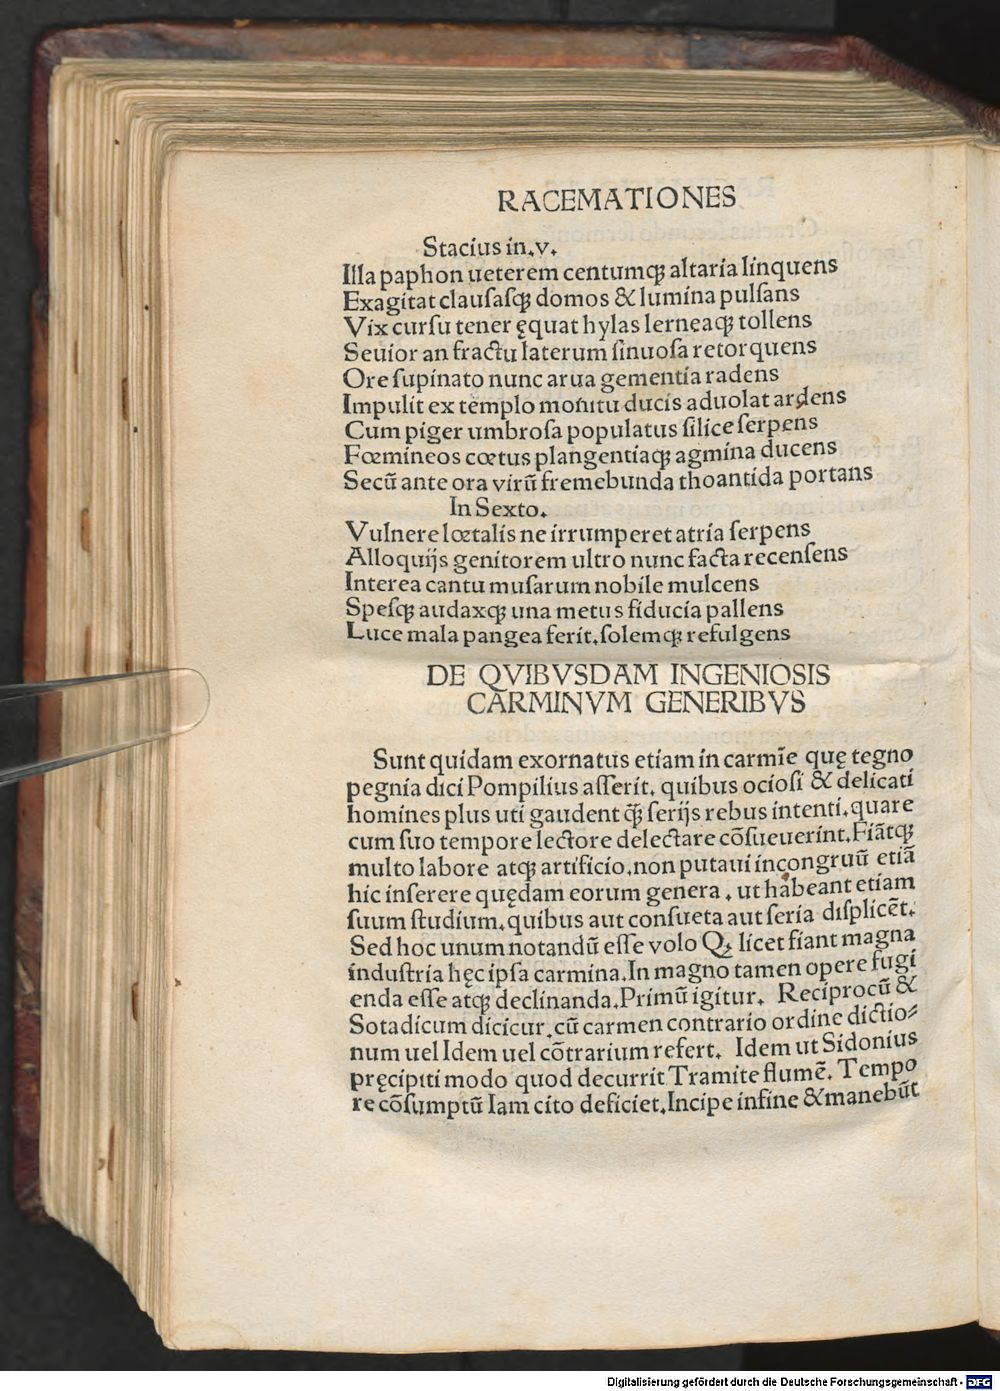 RACEMATIONES
Stacius in.v.
Illa paphon ueterem centumqꝫ altaria linquens
Exagitat clauſaſqꝫ domos & lumina pulſans
Vix curſu tener ęquat hylas lerneaqꝫ tollens
Seuior an fractu laterum ſinuoſa retorquens
Ore ſupinato nunc arua gementia radens
Impulit ex templo monitu ducis aduolat ardens
Cum piger umbroſa populatus ſilice ſerpens
Fœmineos cœtus plangentiaqꝫ agmina ducens
Secū ante ora virū fremebunda thoantida portans
In Sexto.
Vulnere lœtalis ne irrumperet atria ſerpens
Alloquijs genitorem ultro nunc facta recenſens
Interea cantu muſarum nobile mulcens
Speſqꝫ audaxqꝫ una metus fiducia pallens
Luce mala pangea ferit.ſolemqꝫ refulgens
DE QVIBVSDAM INGENIOSIS
CARMINVM GENERIBVS
Sunt quidam exornatus etiam in carmīe quę tegno
pegnia dici Pompilius aſſerit. quibus ocioſi & delicati
homines plus uti gaudent ꝙ̄ ſerijs rebus intenti.quare
cum ſuo tempore lectore delectare cōſueuerint.Fiātqꝫ
multo labore atqꝫ artificio.non putaui incongruū etiā
hic inſerere quędam eorum genera . ut habeant etiam
ſuum ſtudium.quibus aut conſueta aut ſeria diſplicēt.
Sed hoc unum notandū eſſe volo Qꝫ licet fiant magna
induſtria hęc ipſa carmina.In magno tamen opere fugi
enda eſſe atqꝫ declinanda.Primū igitur. Reciprocū &
Sotadicum dicicur.cū carmen contrario ordine dictio⸗
num uel Idem uel cōtrarium refert. Idem ut Sidonius
pręcipiti modo quod decurrit Tramite flumē. Tempo
re cōſumptū Iam cito deficiet.Incipe infine & manebūt
Digitalisierung gefördert durch die Deutsche Forschungsgemeinschaft - DFG